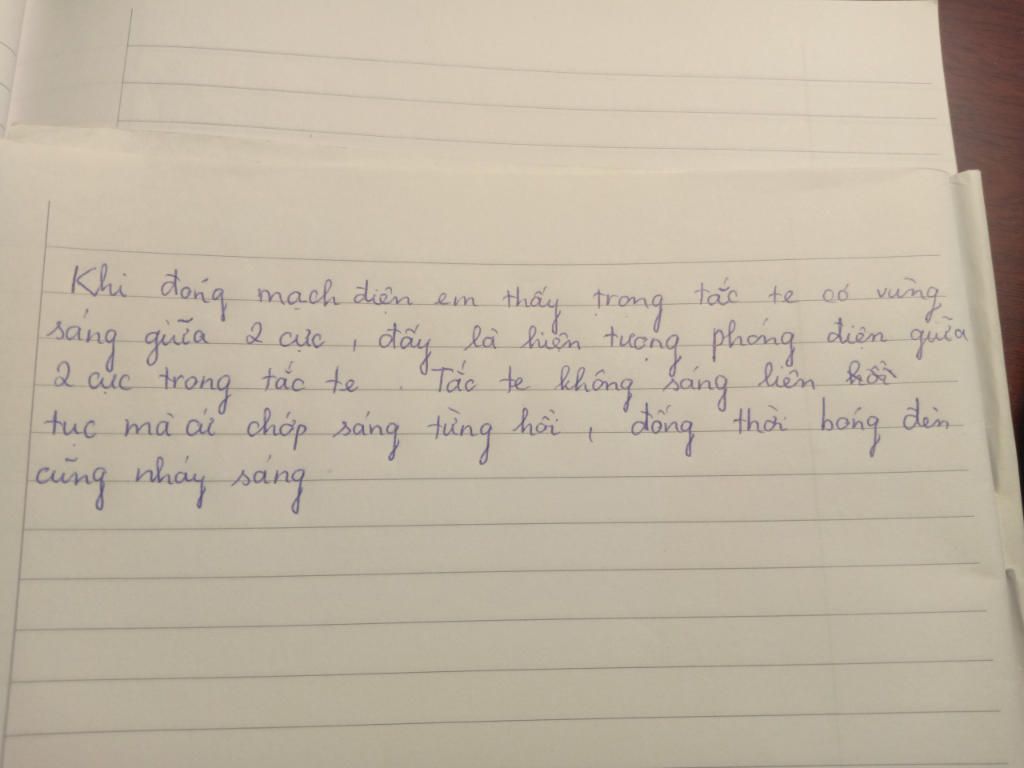 Khi đóng mạch điện em thấy trong tắc te có vùng
sáng giữa 2 cực, đấy là hiện tượng phóng điện giữa
2 cực trong tắc te. Tắc te không sáng liên
tục mà cứ chớp sáng từng hồi, đồng thời bóng đèn
cũng nháy sáng